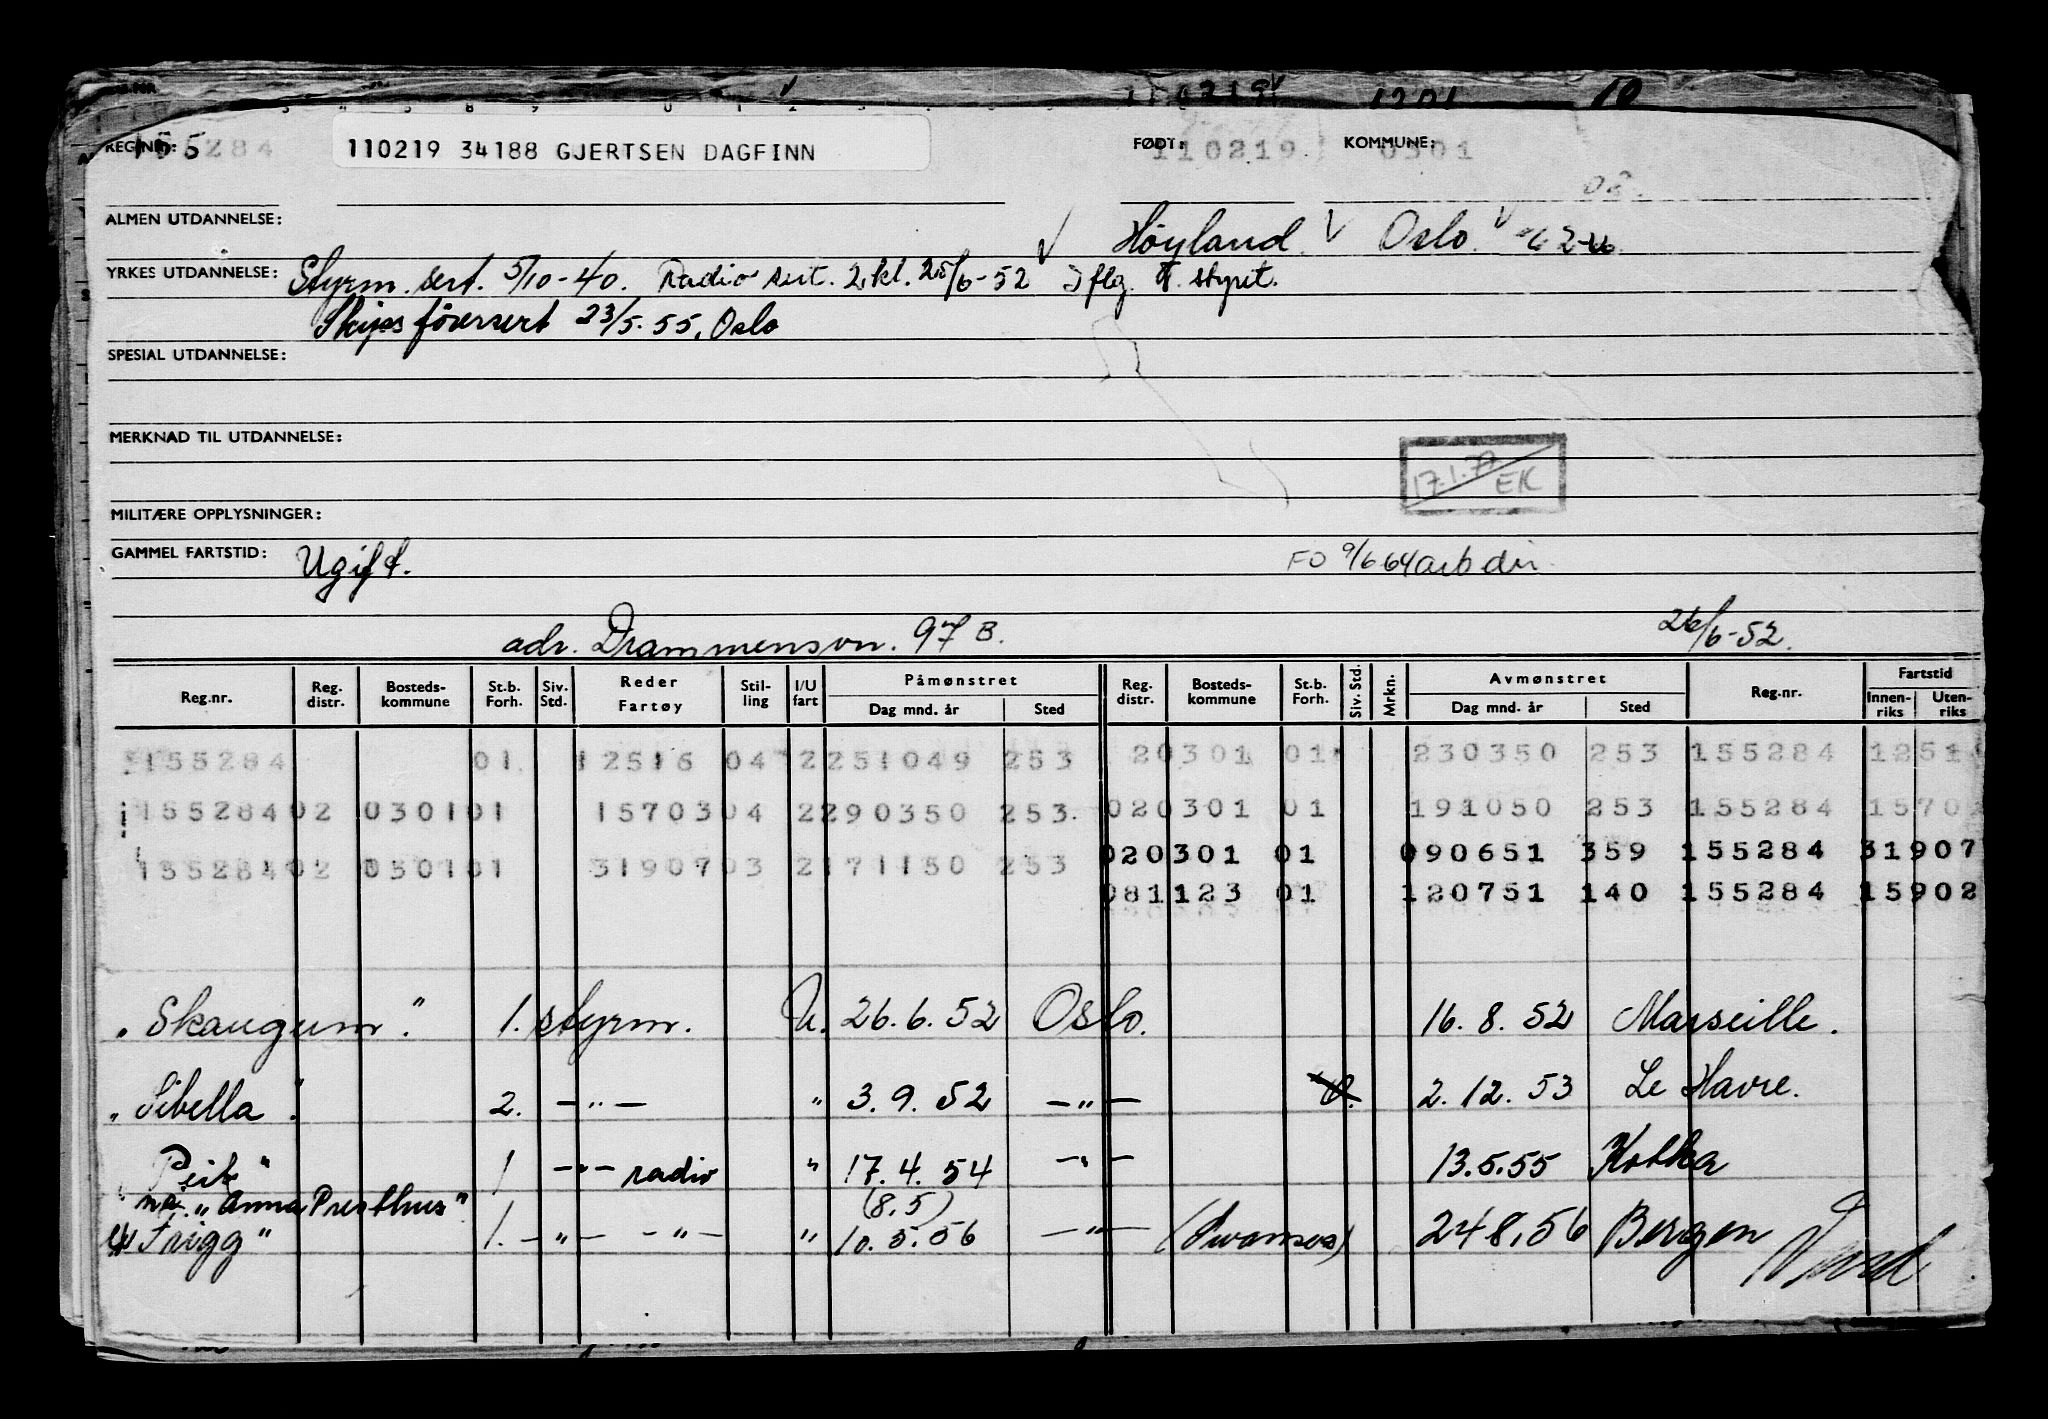 110219 1201 10
REG.NR.: 155284 110219 34188 GJERTSEN DAGFINN FØDT: 110219 KOMMUNE: 0301
ALMEN UTDANNELSE: Høyland. Oslo.
YRKES UTDANNELSE: Styrm. sert. 5/10-40. Radio sert. 2. kl. 25/6-52 Iflg. T. styret.
Skipsførersert 23/5.55, Oslo
SPESIAL UTDANNELSE:
MERKNAD TIL UTDANNELSE:
17.1.77 EK
MILITÆRE OPPLYSNINGER:
GAMMEL FARTSTID: Ugift. FO 9/6 64 arb dir.
adr. Drammensvn. 97 B. 26/6-52.
Reg.nr. Reg. distr. Bosteds-kommune St.b. Forh. Siv. Std. Reder Fartøy Stil-ling I/U fart Påmønstret Dag mnd. år Sted Reg. distr. Bosteds-kommune St.b. Forh. Siv. Std. Mrkn. Avmønstret Dag mnd. år Sted Reg.nr. Fartstid Innen-riks Uten-riks
155284 01 12516 04 2 251049 253 20301 01 230350 253 155284 1251
155284 02 0301 01 15703 04 2 290350 253 020301 01 191050 253 155284 1570
155284 02 0301 01 31907 03 2 171150 253 020301 01 090651 359 155284 31907
081123 01 120751 140 155284 15902
"Skaugum". 1. styrm. U. 26.6.52 Oslo. 16.8.52 Marseille.
"Sibella". 2. —"— " 3.9.52 —"— 2.12.53 Le Havre.
"Peik" 1 —"— radio " 17.4.54 —"— 13.5.55 Kotka
nå "Anna Presthus" (8.5)
ex Frigg" 1. —"— —"— " 10.5.56 —"— (Swansea) 24.8.56 Bergen